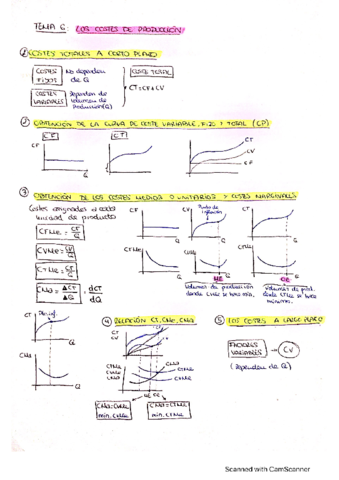 TEMA 6: LOS COSTES DE PRODUCCIÓN
① COSTES TOTALES A CORTO PLAZO
COSTES FIJOS
No dependen de Q
COSTES VARIABLES
Dependen del volumen de producción (Q)
COSTE TOTAL
CT=CF+CV
② OBTENCIÓN DE LA CURVA DE COSTE VARIABLE, FIJO Y TOTAL (CP)
CF
CT
CF
Q
CT
Q
CT
CV
CF
Q
③ OBTENCIÓN DE LOS COSTES MEDIOS O UNITARIOS Y COSTES MARGINALES
Costes asignados a cada unidad de producto
CFMe = CF/Q
CVMe = CV/Q
CTMe = CT/Q
CMa = ΔCT/ΔQ = dCT/dQ
CF
Q
CFMe
Q
CV
Punto de inflexión
Q
CVMe
Q
CT
Q
CTMe
Q
Volumen de producción donde CVMe se hace mín.
Volumen de prod. donde CTMe se hace mínimo
CT
Q
CMa
Q
④ RELACIÓN CT, CMe, CMa
CT
CV
CT
CV
Q
CTMe
CVMe
CMa
CMa
CTMe
CVMe
Q
CMa=CVMe
mín. CVMe
CMa=CTMe
mín. CTMe
⑤ LOS COSTES A LARGO PLAZO
FACTORES VARIABLES → CV
(Dependen de Q)
Scanned with CamScanner